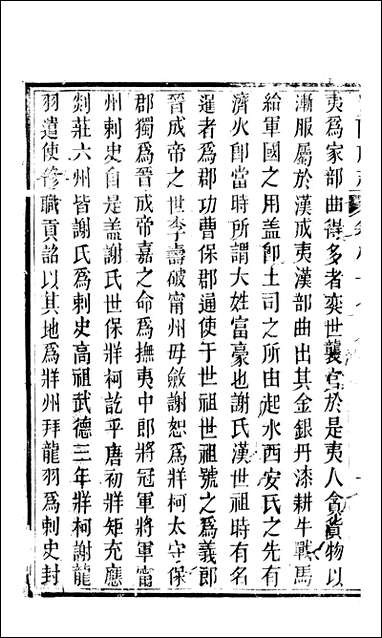 夷為家部曲得多者奕世襲官於是夷人貪貨物以
漸服屬於漢成夷漢部曲出其金銀丹漆耕牛戰馬
給軍國之用蓋卽土司之所由起水西安氏之先有
濟火卽當時所謂大姓富豪也謝氏漢世祖時有名
暹者為郡功曹保郡通使于世祖世祖號之為義郎
晉成帝之世李壽破甯州毋斂謝恕為牂柯太守保
郡獨為晉成帝嘉之命為撫夷中郎將冠軍將軍甯
州刺史自是蓋謝氏世保牂柯訖乎唐初牂矩充應
剡莊六州皆謝氏為刺史高祖武德三年牂柯謝龍
羽遣使修職貢詔以其地為牂州拜龍羽為刺史封